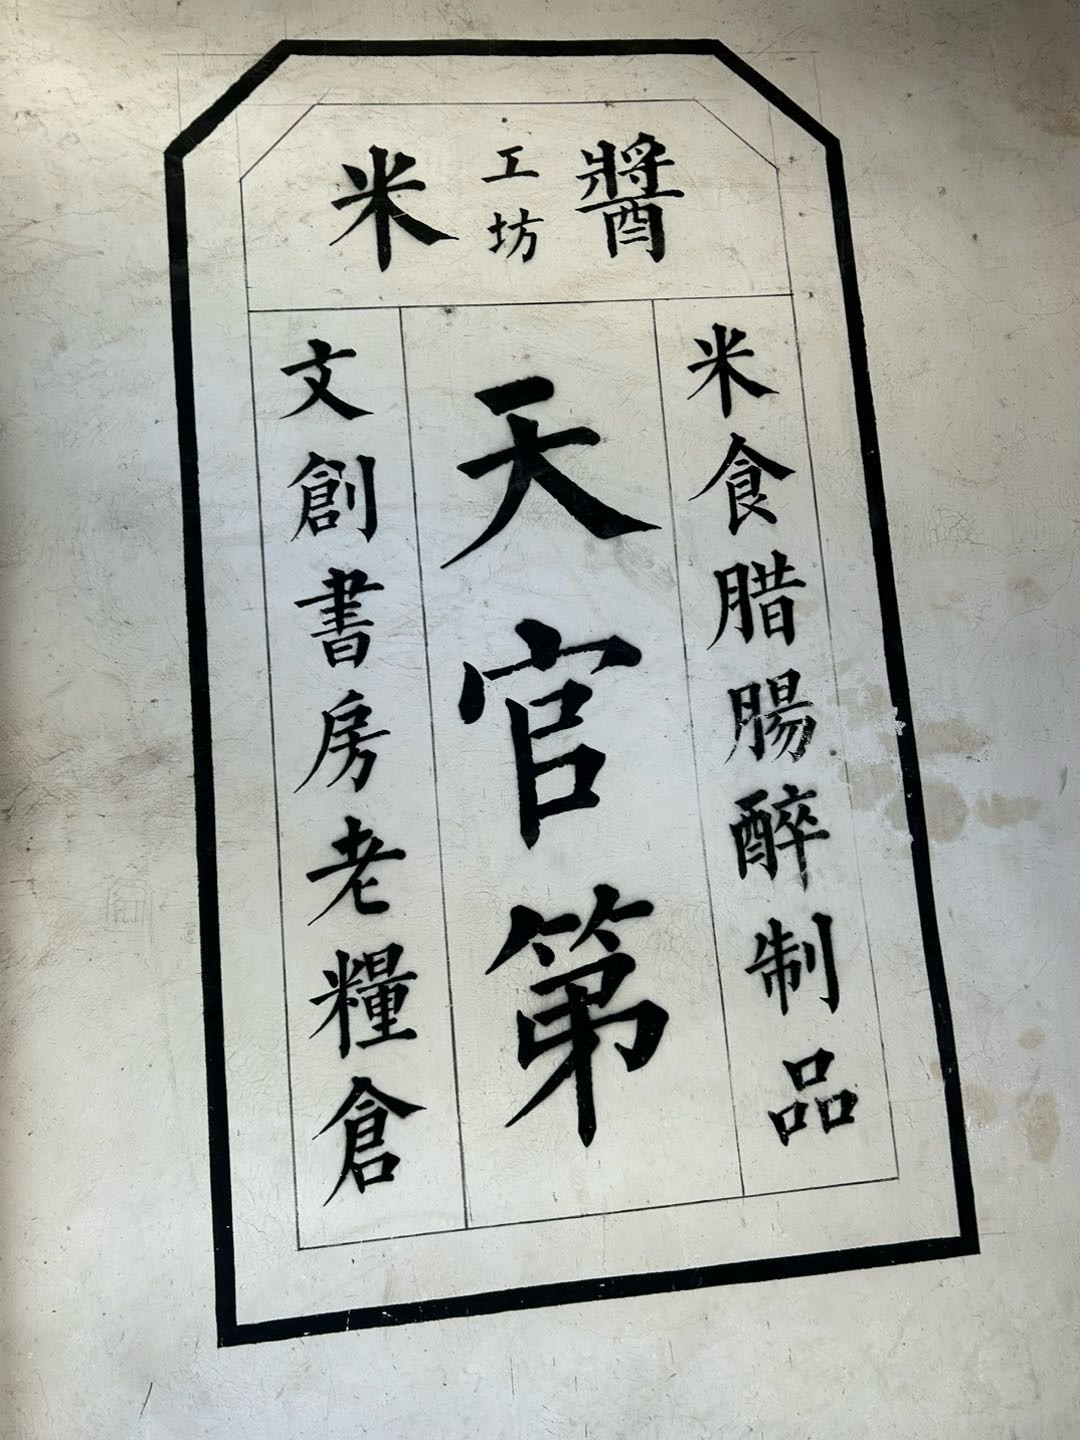 醬工坊米
米食腊腸醉制品
天官第
文創書房老糧倉